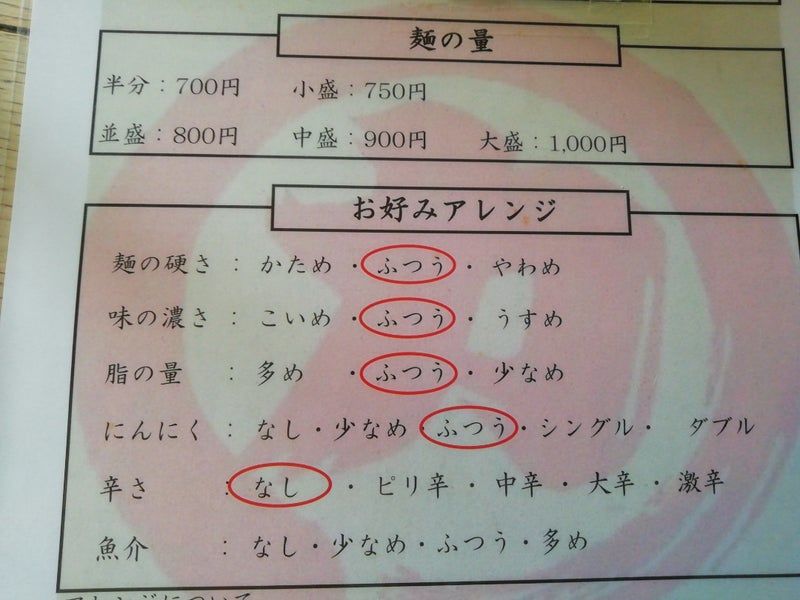 麺の量
半分：700円 小盛：750円
並盛：800円 中盛：900円 大盛：1,000円
お好みアレンジ
麺の硬さ：かため・ふつう・やわめ
味の濃さ：こいめ・ふつう・うすめ
脂の量：多め・ふつう・少なめ
にんにく：なし・少なめ・ふつう・シングル・ダブル
辛さ：なし・ピリ辛・中辛・大辛・激辛
魚介：なし・少なめ・ふつう・多め
アレンジについて